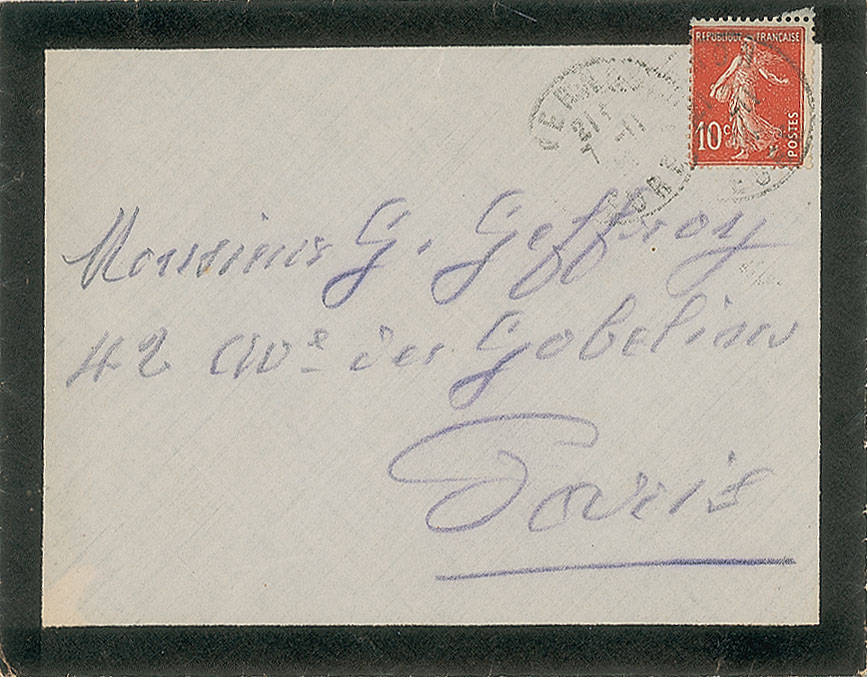 REPUBLIQUE FRANÇAISE
10c POSTES
Monsieur G. Geffroy
42 Ave des Gobelins
Paris